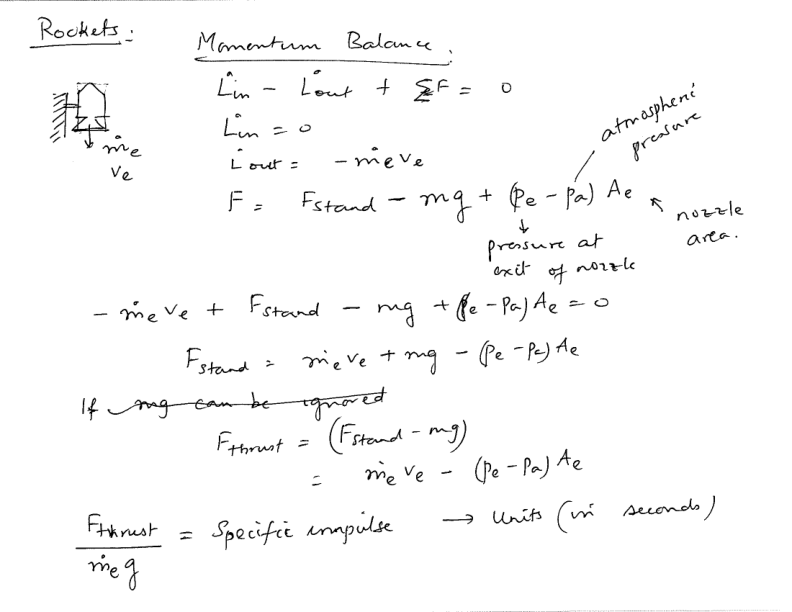 Rockets:
Momentum Balance.
L̇in - L̇out + ΣF = 0
L̇in = 0
L̇out = - ṁe ve
F = Fstand - mg + (pe - pa) Ae
atmospheric pressure
nozzle area.
pressure at
exit of nozzle
ṁe
ve
- ṁe ve + Fstand - mg + (pe - pa) Ae = 0
Fstand = ṁe ve + mg - (pe - pa) Ae
If mg can be ignored
Fthrust = (Fstand - mg)
= ṁe ve - (pe - pa) Ae
Fthrust / ṁe g = Specific impulse → Units (in seconds)